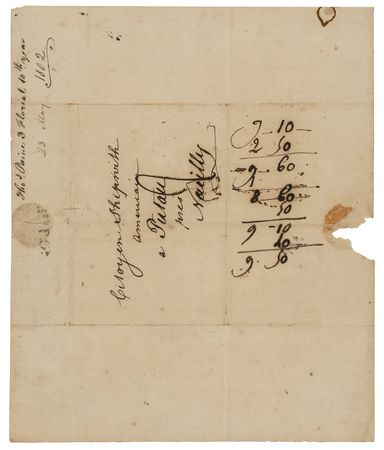 Thos. Paine 3 Floreal 10th year
23 May 1802
Citoyen Skipwith
Americain
a Putau
pres
Neuilly
9 - 10
2 50
9 - 60
8 - 60
- 50
9 - 10
40
9 . 50